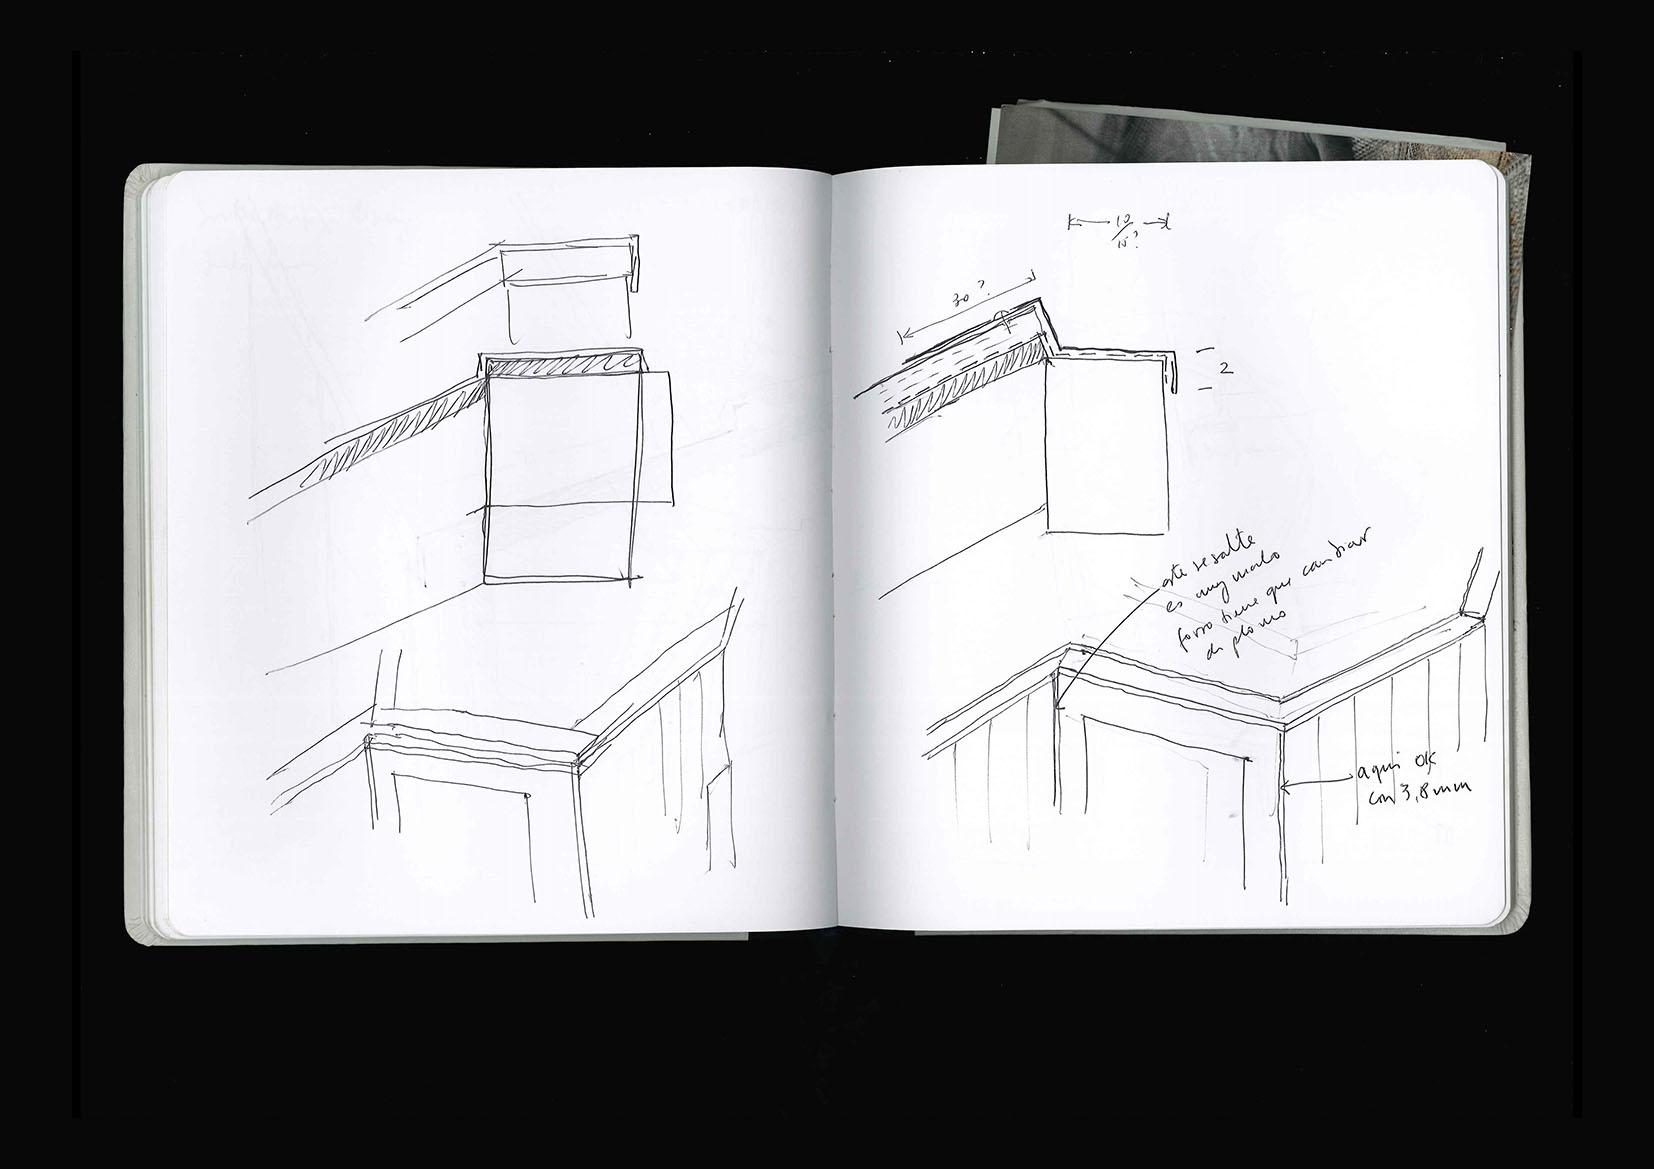 10
15?
30?
2
este resalte
es muy malo
forro tiene que cambiar
de plomo
aqui OK
con 3,8mm